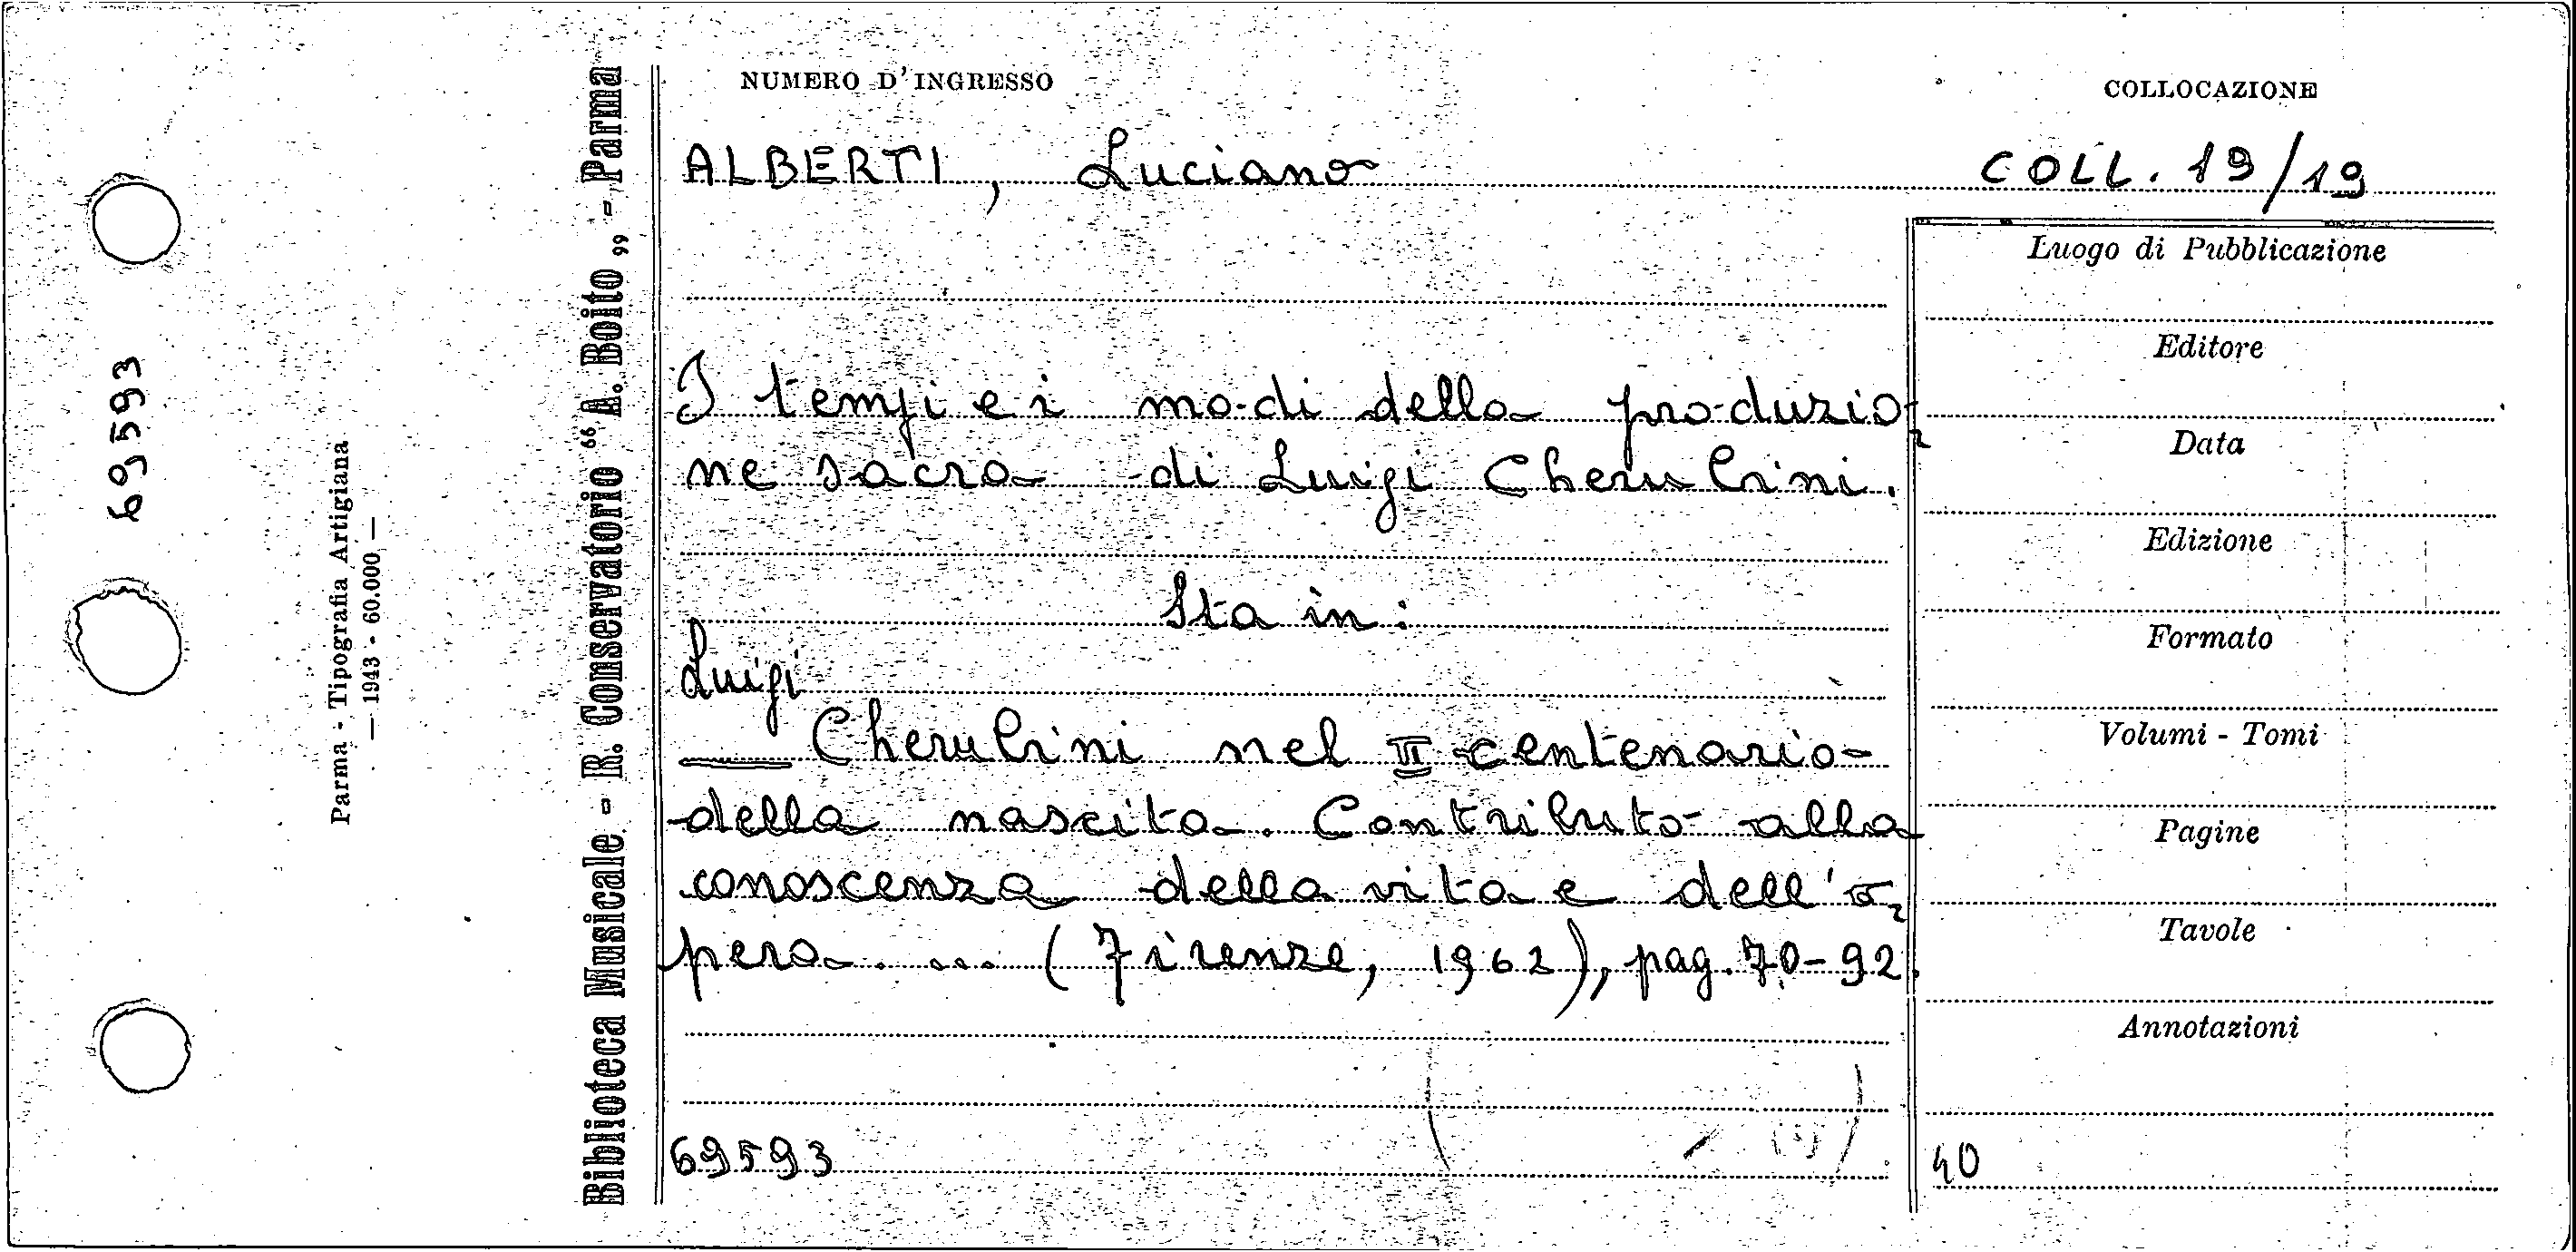 69593
Parma - Tipografia Artigiana
— 1943 - 60.000 —
Biblioteca Musicale - R. Conservatorio “A. Boito„ - Parma
NUMERO D'INGRESSO
COLLOCAZIONE
ALBERTI, Luciano
COLL. 19/19
I tempi e i modi della produzio-
ne sacra di Luigi Cherubini.
Sta in:
Luigi
— Cherubini nel II centenario
della nascita. Contributo alla
conoscenza della vita e dell'o-
pera ... (Firenze, 1962), pag. 70-92.
69593
Luogo di Pubblicazione
Editore
Data
Edizione
Formato
Volumi - Tomi
Pagine
Tavole
Annotazioni
40